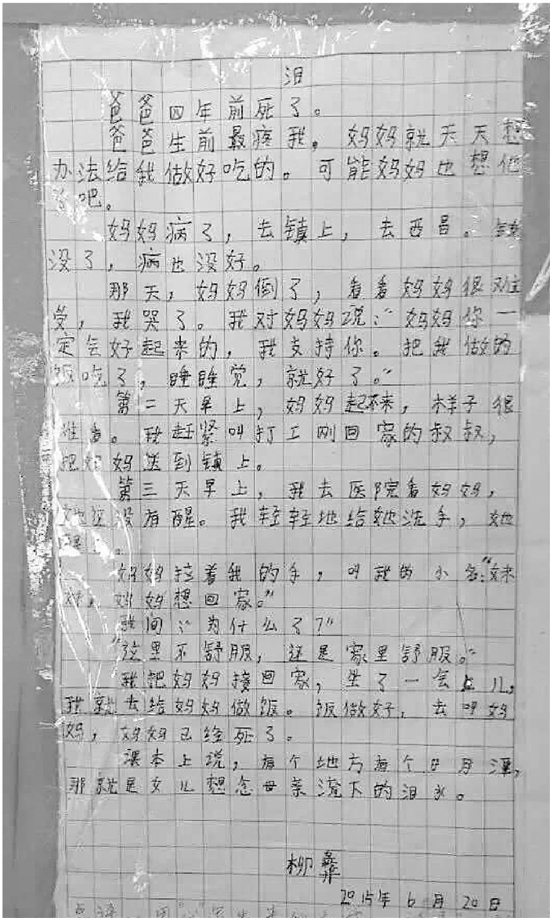 泪
爸爸四年前死了。
爸爸生前最疼我，妈妈就天天想
办法给我做好吃的。可能妈妈也想他
了吧。
妈妈病了，去镇上，去西昌。钱
没了，病也没好。
那天，妈妈倒了，看着妈妈很难
受，我哭了。我对妈妈说：“妈妈你一
定会好起来的，我支持你。把我做的
饭吃了，睡睡觉，就好了。”
第二天早上，妈妈起不来，样子很
难看。我赶紧叫打工刚回家的叔叔，
把妈妈送到镇上。
第三天早上，我去医院看妈妈，
她还没有醒。我轻轻地给她洗手，她
醒了。
妈妈拉着我的手，叫我的小名：“妹
妹，妈妈想回家。”
我问：“为什么了？”
“这里不舒服，还是家里舒服。”
我把妈妈接回家，坐了一会儿，
我就去给妈妈做饭。饭做好，去叫妈
妈，妈妈已经死了。
课本上说，有个地方有个日月潭，
那就是女儿想念母亲流下的泪水。
柳彝
2015年6月20日